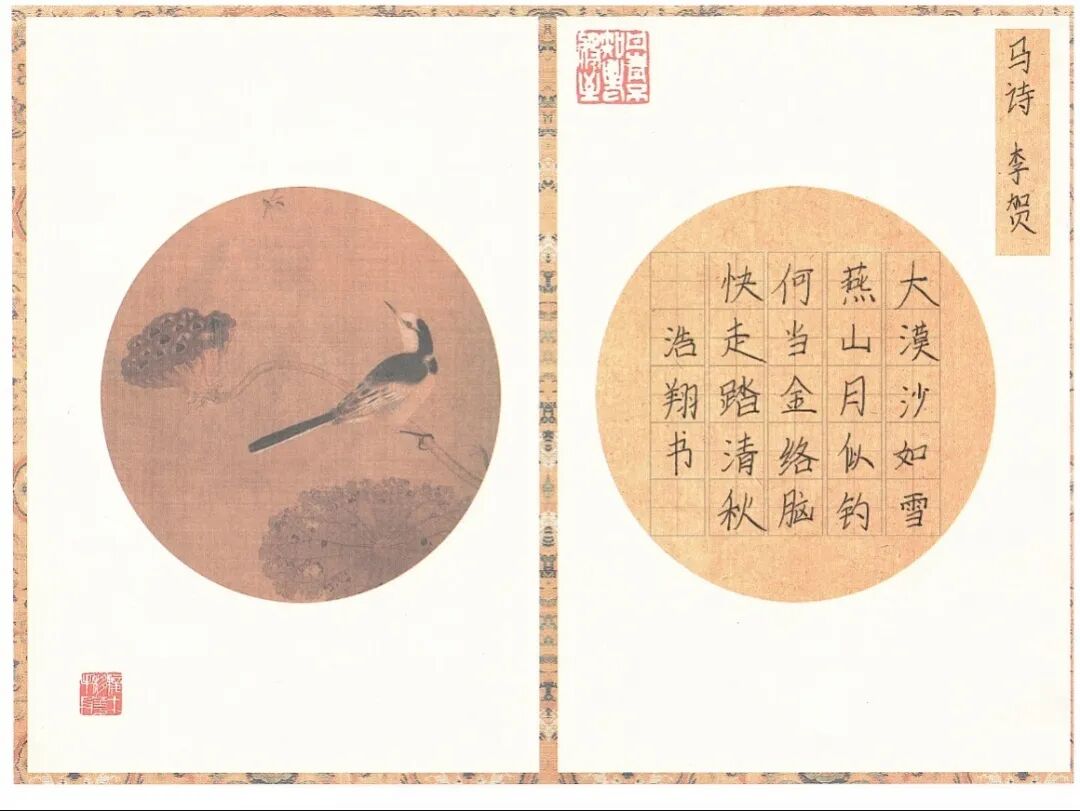 马诗 李贺
大漠沙如雪
燕山月似钓
何当金络脑
快走踏清秋
浩翔书